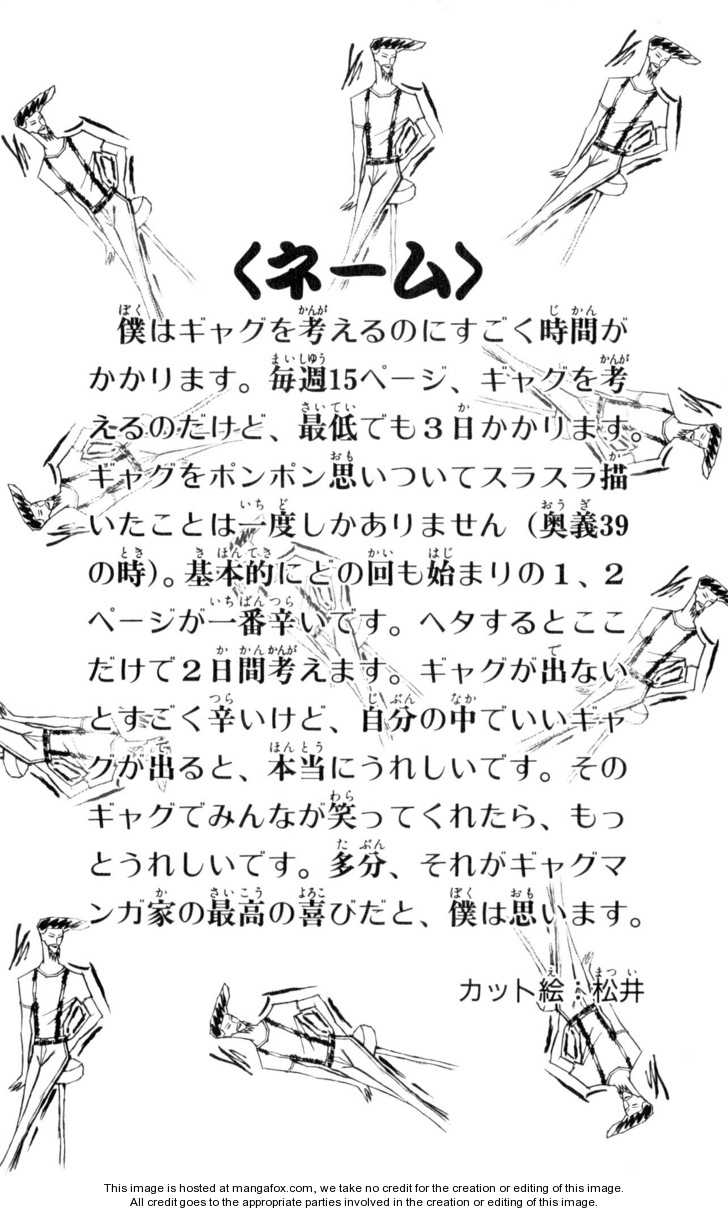 〈ネーム〉
僕はギャグを考えるのにすごく時間が
かかります。毎週15ページ、ギャグを考
えるのだけど、最低でも３日かかります。
ギャグをポンポン思いついてスラスラ描
いたことは一度しかありません（奥義39
の時）。基本的にどの回も始まりの１、２
ページが一番辛いです。ヘタするとここ
だけで２日間考えます。ギャグが出ない
とすごく辛いけど、自分の中でいいギャ
グが出ると、本当にうれしいです。その
ギャグでみんなが笑ってくれたら、もっ
とうれしいです。多分、それがギャグマ
ンガ家の最高の喜びだと、僕は思います。
カット絵：松井
This image is hosted at mangafox.com, we take no credit for the creation or editing of this image.
All credit goes to the appropriate parties involved in the creation or editing of this image.